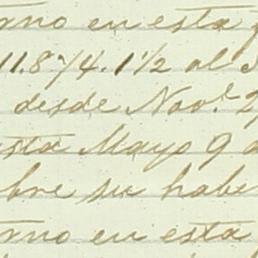 mo en esta
11.874. 1½ al
desde Nov.
sta Mayo 9
bre su habe
mo en esta